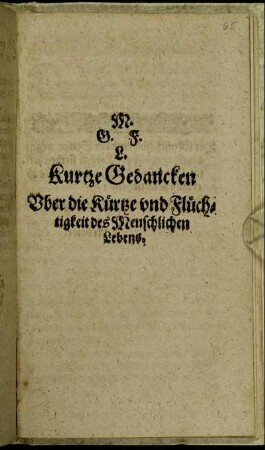 M.
G. F.
L.
Kurtze Gedancken
Vber die Kürtze vnd Flüch-
tigkeit des Menschlichen
Lebens.